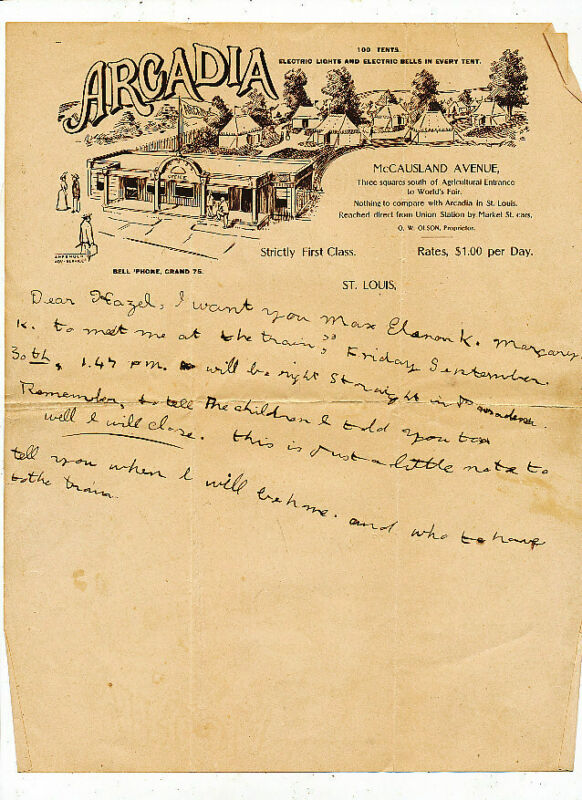 100 TENTS.
ELECTRIC LIGHTS AND ELECTRIC BELLS IN EVERY TENT.
ARCADIA
McCAUSLAND AVENUE,
Three squares south of Agricultural Entrance
to World's Fair.
Nothing to compare with Arcadia in St. Louis.
Reached direct from Union Station by Market St. cars,
O. W. OLSON, Proprietor.
Strictly First Class. Rates, $1.00 per Day.
BELL 'PHONE, GRAND 75.
ST. LOUIS,
Dear Hazel, I want you Max Elenor K. Margary
K. to meet me at the train, Friday September.
30th, 1.47 P.M. will be right straight in
Remember, to tell the children I told you too
well I will close. this is just a little note to
tell you when I will be home. and who to have
to the train.